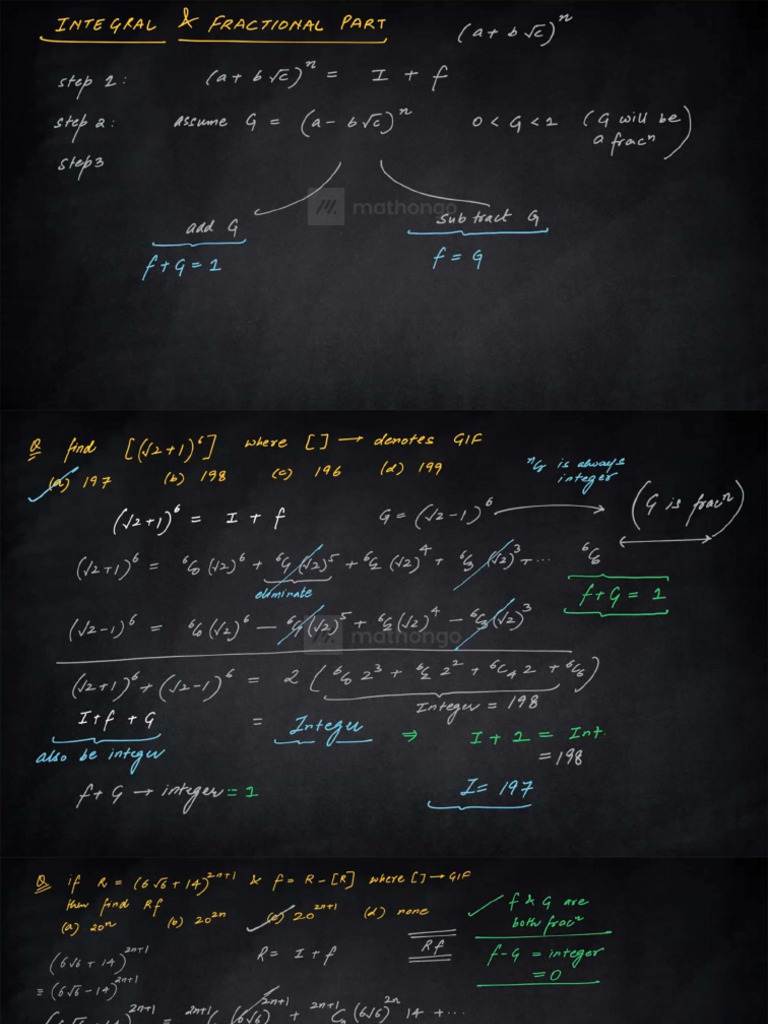 INTEGRAL & FRACTIONAL PART (a + b√c)^n
step 1: (a + b√c)^n = I + f
step 2: assume G = (a - b√c)^n 0 < G < 1 (G will be a frac^n)
step 3
mathongo
add G subtract G
f + G = 1 f = G
Q find [(√2+1)^6] where [ ] → denotes GIF
(a) 197 (b) 198 (c) 196 (d) 199
nCr is always integer
(√2+1)^6 = I + f G = (√2-1)^6 (G is frac^n)
(√2+1)^6 = 6C0 (√2)^6 + 6C1 (√2)^5 + 6C2 (√2)^4 + 6C3 (√2)^3 + ... 6C6
eliminate f + G = 1
(√2-1)^6 = 6C0 (√2)^6 - 6C1 (√2)^5 + 6C2 (√2)^4 - 6C3 (√2)^3
mathongo
(√2+1)^6 + (√2-1)^6 = 2 ( 6C0 2^3 + 6C2 2^2 + 6C4 2 + 6C6 )
Integer = 198
I + f + G = Integer ⇒ I + 1 = Int.
also be integer = 198
f + G → integer = 1 I = 197
Q if R = (6√6 + 14)^2n+1 & f = R - [R] where [ ] → GIF
then find Rf
(a) 20^n (b) 20^2n (c) 20^2n+1 (d) none
f & G are both frac^n
(6√6 + 14)^2n+1 R = I + f Rf
f - G = integer
= 0
= (6√6 - 14)^2n+1